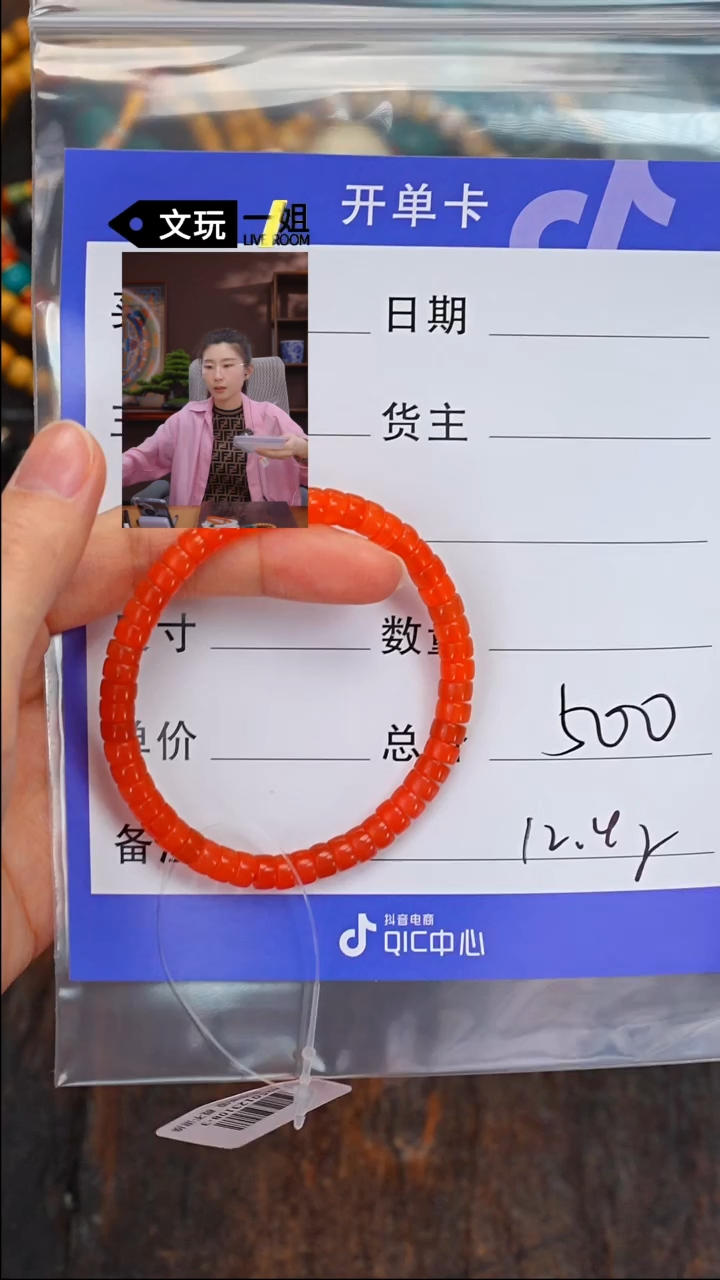 开单卡
文玩 一姐
LIVE ROOM
日期
货主
寸 数量
单价 总
500
备注
12.4g
抖音电商
QIC中心